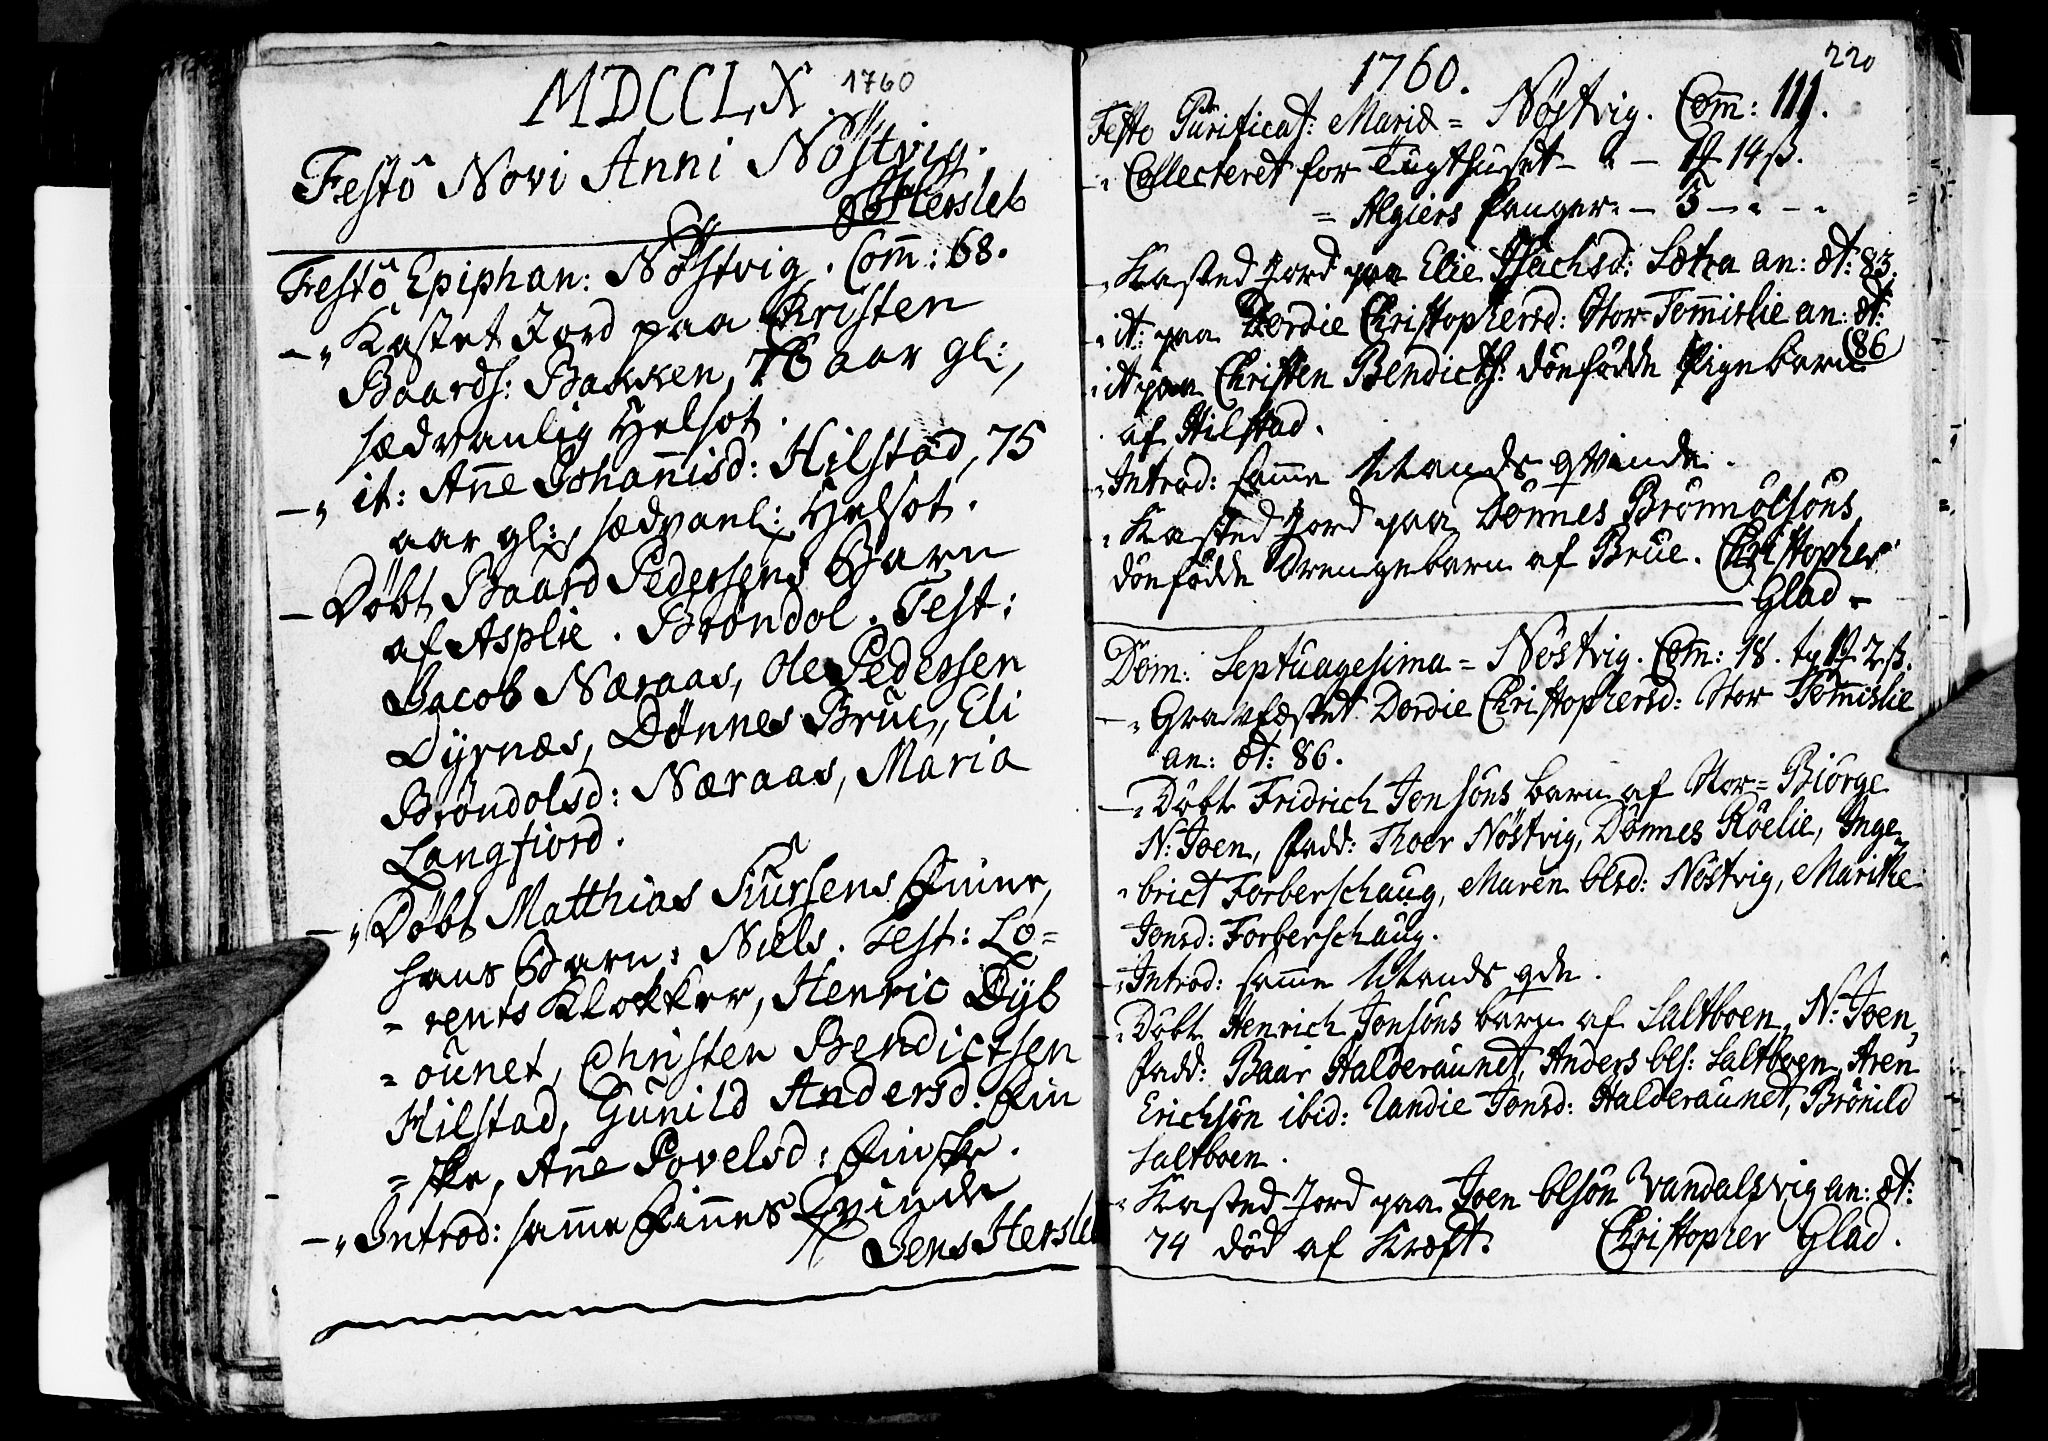 MDCCLX. 1760
Festô Novi Anni Nöstvig.
Hersleb
Festô Epiphan: Nöstvig. Com̄: 68.
-„ Kastet Jord paa Christen
Baards: Bakken, 76 aar gl:,
sædvanlig Helsot.
-„ it: An̄e Johan̄isd: Hilstad, 75
aar gl:, sædvanl: Helsot.
- Döbt Baard Pedersens Barn
af Asplie. Bröndol. Test:
Jacob Næraas, Ole Pedersen
Dyrnæs, Dönnes Brue, Eli
Bröndolsd: Næraas, Maria
Langfiord.
-„ Döbt Matthias Siursens Finne,
hans Barn: Niels. Test: Lo=
= rents Klokker, Henric Dyb
= ounet, Christen Bendictsen
Hilstad, Gunild Andersd: Fin
= ske, An̄e Povelsd: Finske.
-„ Introd: sam̄e Finnes Qvinde
Jens Hersleb
220
1760.
Festo Purificat: Mariæ = Nöstvig. Com̄: 111.
-„ Collecteret for Tugthuset - 14 ß.
= Algiers Fanger. - 3 - „ - „
-„ Kasted Jord paa Elie Isachsd: Sætra an: æt: 83.
„ it: paa Dordie Christophersd: Stor-Tom̄islie an: æt:
86
„ it paa Christen Bendicts: dönfödde Pigebarn
af Hilstad.
-„ Introd: sam̄e Mands qvinde.
„ Kasted Jord paa Dönnes Brönnolsöns
dönfödde Drengebarn af Brue. Christopher
Glad -
Dom: Septuagesima = Nöstvig. Com̄: 18. 2 ß.
-„ Gravfæstet Dordie Christophersd: Stor Tom̄islie
an: æt: 86.
-„ Döbt Fridrich Jonsöns barn af Stor=Biörge
N: Joen, Fadd: Thoer Nöstvig, Dönnes Röelie, Inge
= brict Forberschaug, Maren Olsd: Nöstvig, Marithe
Jonsd: Forberschaug.
-„ Introd: sam̄e Mands qde.
-„ Döbt Henrich Jonsöns barn af Saltboen, N: Joen,
Fadd: Baar Halderaunet, Anders Ols: Saltboen, Aren
Erichsön ibid: Randie Jonsd: Halderaunet, Brönild
Saltboen.
-„ Kasted Jord paa Joen Olsön Vandalsvig an: æt:
74 död af Kræft. Christopher Glad.